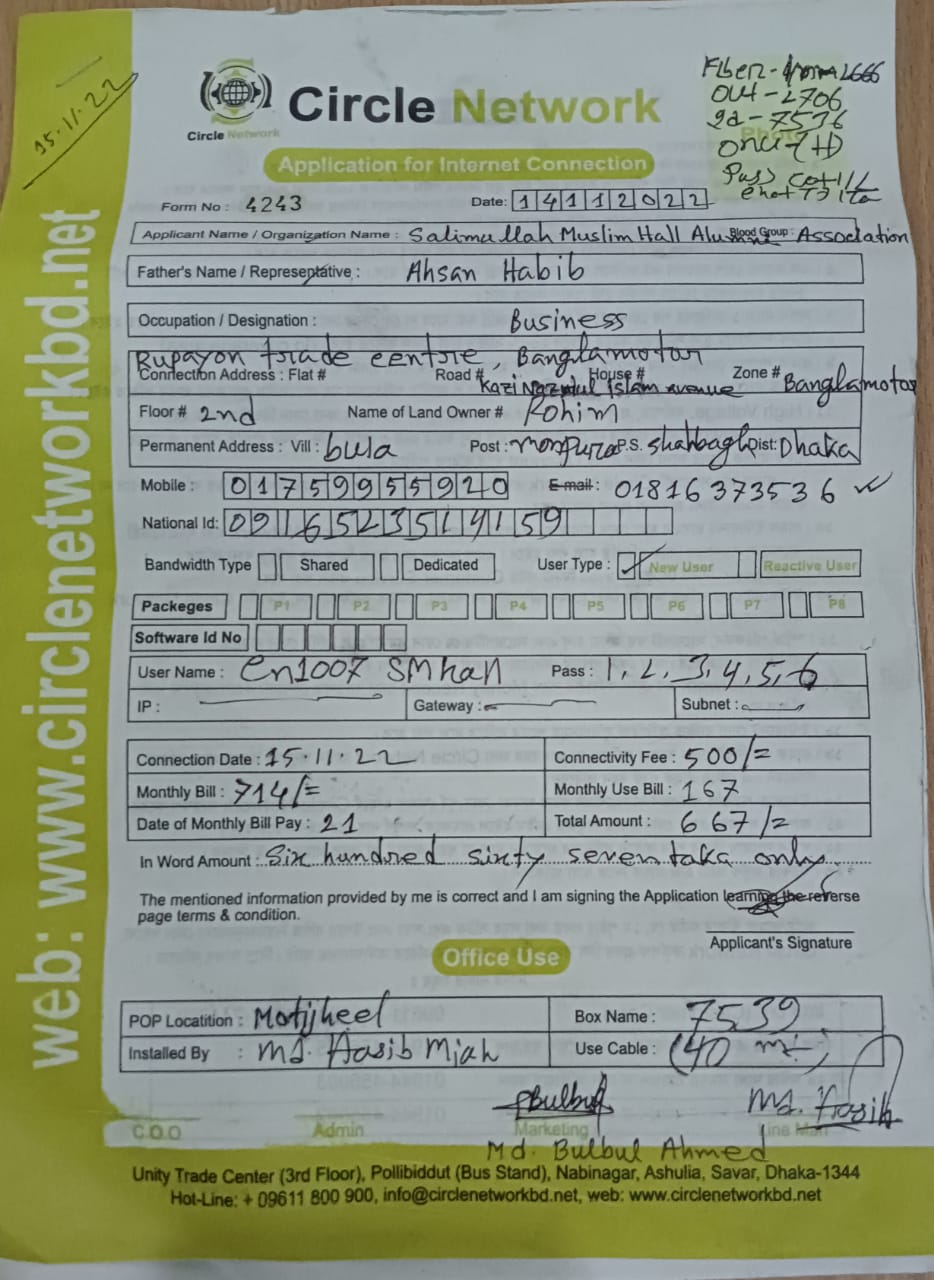 15.11.22
Fiber-from 2666
Out-2706
Id-7536
Onu-THD
Pass
Circle Network
Circle Network
Application for Internet Connection
Form No : 4243
Date: 14112022
Applicant Name / Organization Name : Salimullah Muslim Hall Alumni Blood Group : Association
Father's Name / Representative : Ahsan Habib
Occupation / Designation : Business
Rupayon trade centre, Banglamotor
Connection Address : Flat # Road # House # Zone # Banglamotor
Kazi Nazrul islam avenue
Floor # 2nd Name of Land Owner # Rohim
Permanent Address : Vill : bula Post : monpura P.S. Shahbagh Dist: Dhaka
Mobile : 01759955920 E-mail : 01816373536
National Id: 0916523514159
Bandwidth Type Shared Dedicated User Type : ✓ New User Reactive User
Packeges P1 P2 P3 P4 P5 P6 P7 P8
Software Id No
User Name : en1007 smhall Pass : 1,2,3,4,5,6
IP : Gateway : Subnet :
Connection Date : 15.11.22 Connectivity Fee : 500/=
Monthly Bill : 714/= Monthly Use Bill : 167
Date of Monthly Bill Pay : 21 Total Amount : 667/=
In Word Amount : Six hundred sixty seven taka only
The mentioned information provided by me is correct and I am signing the Application learning the reverse
page terms & condition.
Applicant's Signature
Office Use
POP Locatition : Motijheel Box Name : 7539
Installed By : Md. Hasib Miah Use Cable : (40 m)
Bulbul Md. Hasib
C.O.O Admin Marketing Line Man
Md. Bulbul Ahmed
Unity Trade Center (3rd Floor), Pollibiddut (Bus Stand), Nabinagar, Ashulia, Savar, Dhaka-1344
Hot-Line: + 09611 800 900, info@circlenetworkbd.net, web: www.circlenetworkbd.net
web: www.circlenetworkbd.net